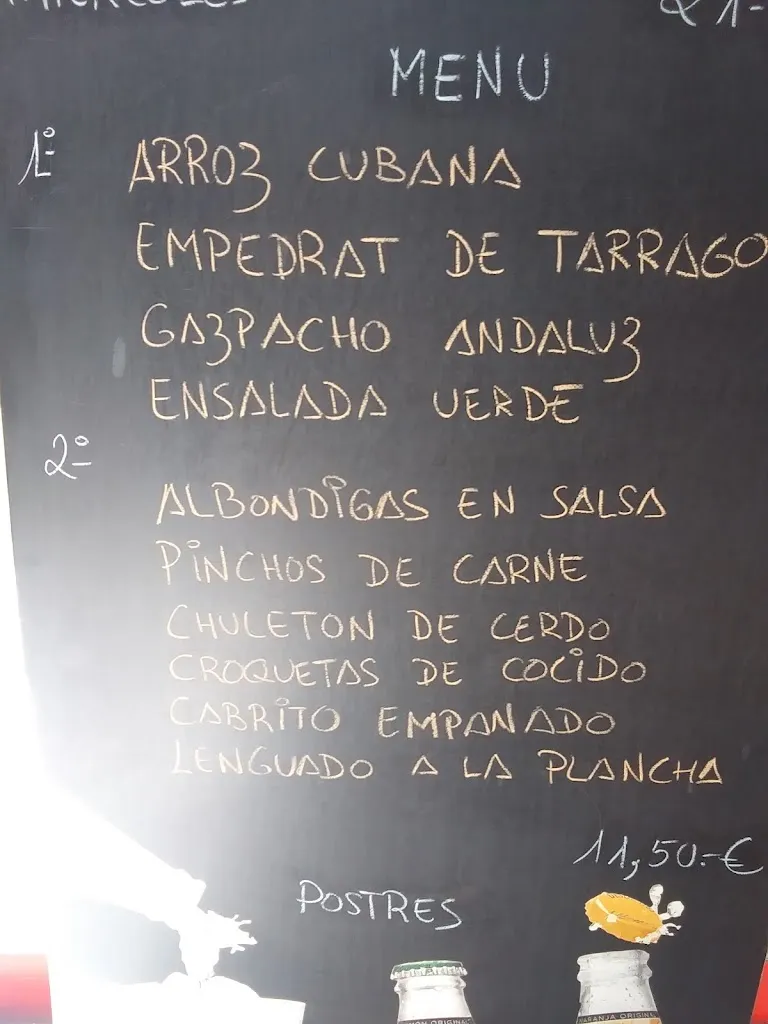 MIERCOLES 21-
MENU
1º- ARROZ CUBANA
EMPEDRAT DE TARRAGO
GAZPACHO ANDALUZ
ENSALADA VERDE
2º-
ALBONDIGAS EN SALSA
PINCHOS DE CARNE
CHULETON DE CERDO
CROQUETAS DE COCIDO
CABRITO EMPANADO
LENGUADO A LA PLANCHA
11,50.-€
POSTRES
ORIGINAL
NARANJA ORIGINAL